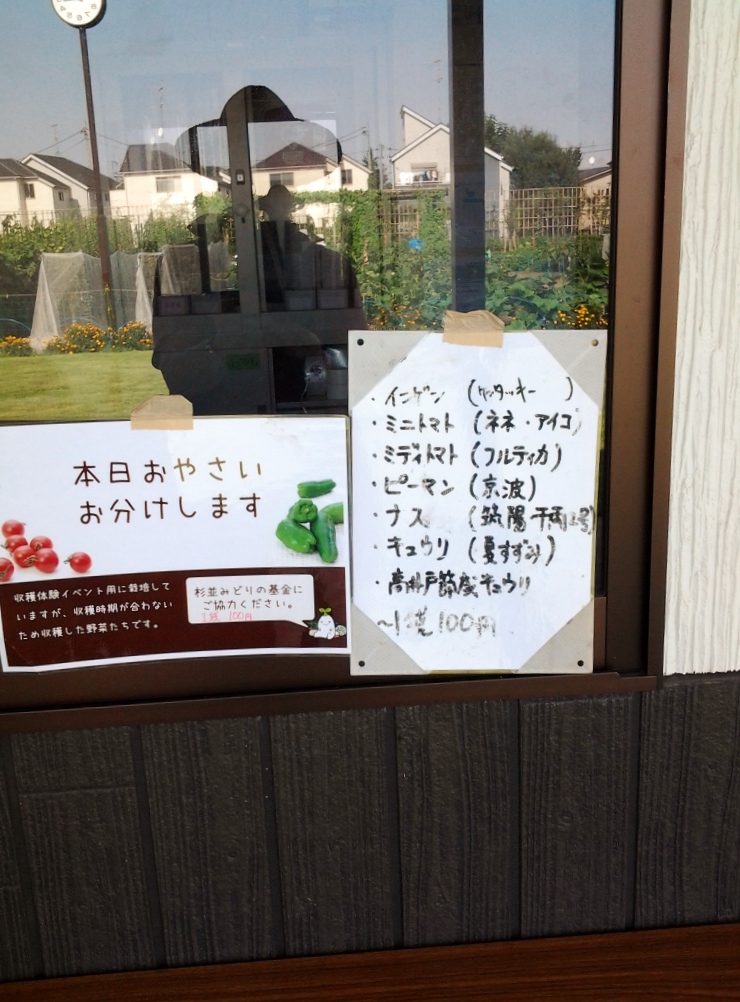 本日おやさい
お分けします
収穫体験イベント用に栽培して
いますが、収穫時期が合わない
ため収穫した野菜たちです。
杉並みどりの基金に
ご協力ください。
1袋 100円
・インゲン (ケンタッキー )
・ミニトマト (ネネ・アイコ)
・ミディトマト (フルティカ)
・ピーマン (京波)
・ナス (筑陽 千両2号)
・キュウリ (夏すずみ)
・高井戸節成キュウリ
〜1袋100円